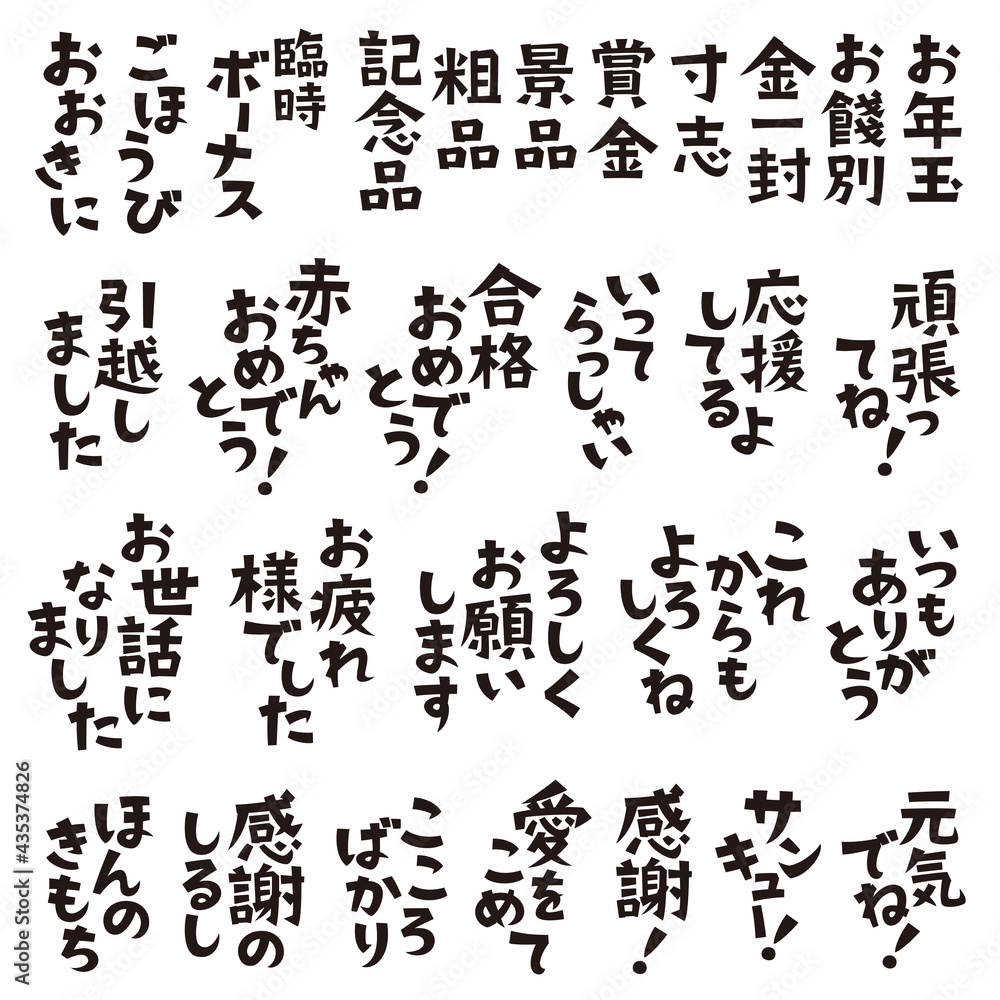 お年玉
お餞別
金一封
寸志
賞金
景品
粗品
記念品
臨時
ボーナス
ごほうび
おおきに
頑張っ
てね!
応援
してるよ
いって
らっしゃい
合格
おめで
とう!
赤ちゃん
おめで
とう!
引越し
ました
いつも
ありが
とう
これ
からも
よろ
しくね
よろしく
お願い
します
お疲れ
様でした
お世話に
なり
ました
元気
でね!
サン
キュー!
感謝!
愛を
こめて
こころ
ばかり
感謝の
しるし
ほんの
きもち
Adobe Stock
© yurie / Adobe Stock | #435374826